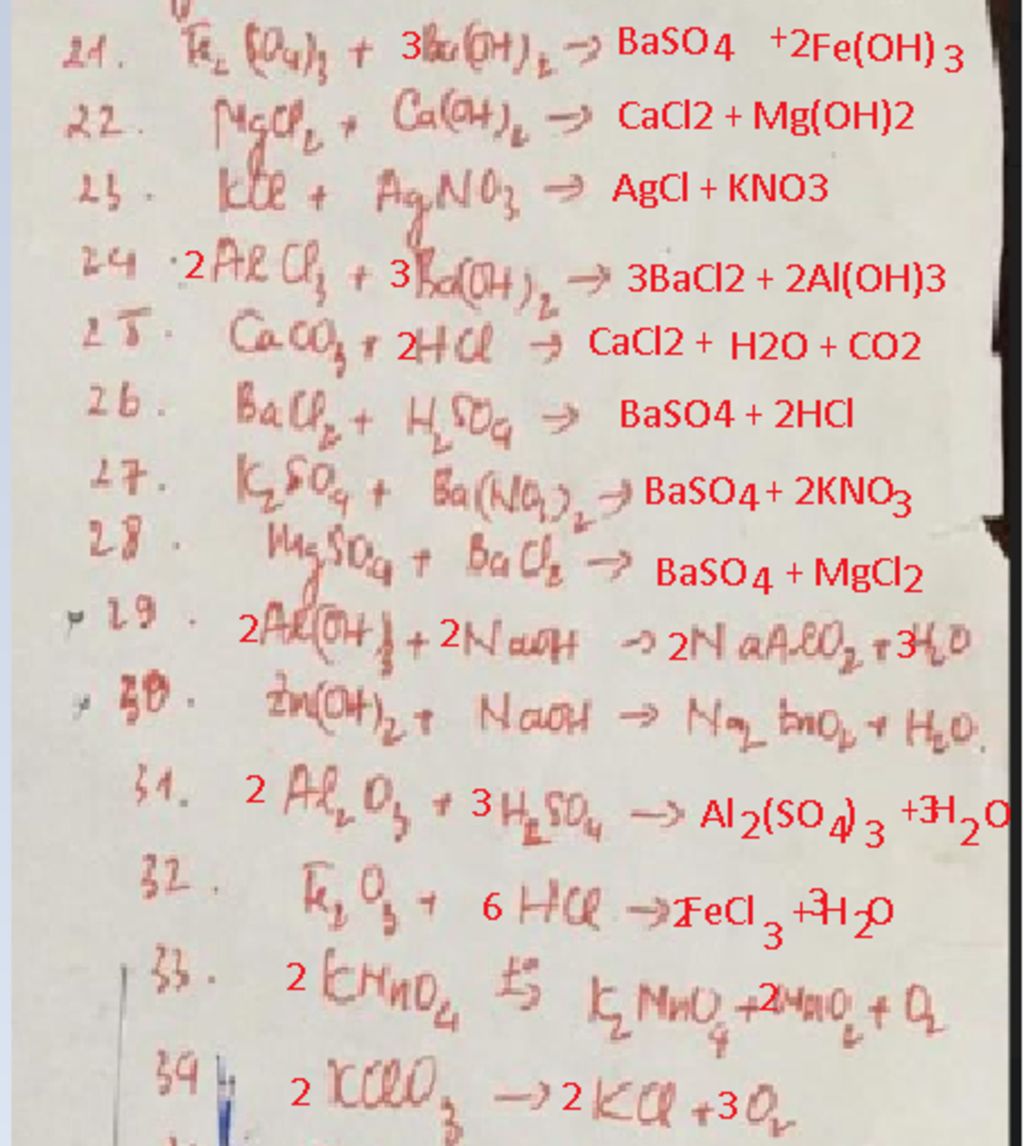 21. Fe2(SO4)3 + 3Ba(OH)2 → BaSO4 +2Fe(OH)3
22. MgCl2 + Ca(OH)2 → CaCl2 + Mg(OH)2
23. KCl + AgNO3 → AgCl + KNO3
24 . 2AlCl3 + 3Ba(OH)2 → 3BaCl2 + 2Al(OH)3
25. CaCO3 + 2HCl → CaCl2 + H2O + CO2
26. BaCl2 + H2SO4 → BaSO4 + 2HCl
27. K2SO4 + Ba(NO3)2 → BaSO4 + 2KNO3
28. MgSO4 + BaCl2 → BaSO4 + MgCl2
29. 2Al(OH)3 + 2NaOH → 2NaAlO2 + 3H2O
30. Zn(OH)2 + NaOH → Na2ZnO2 + H2O.
31. 2 Al2O3 + 3H2SO4 → Al2(SO4)3 +3H2O
32. Fe2O3 + 6 HCl → 2FeCl3 +3H2O
33. 2 KMnO4 t° → K2MnO4 + 2MnO2 + O2
34 2 KClO3 → 2 KCl + 3 O2